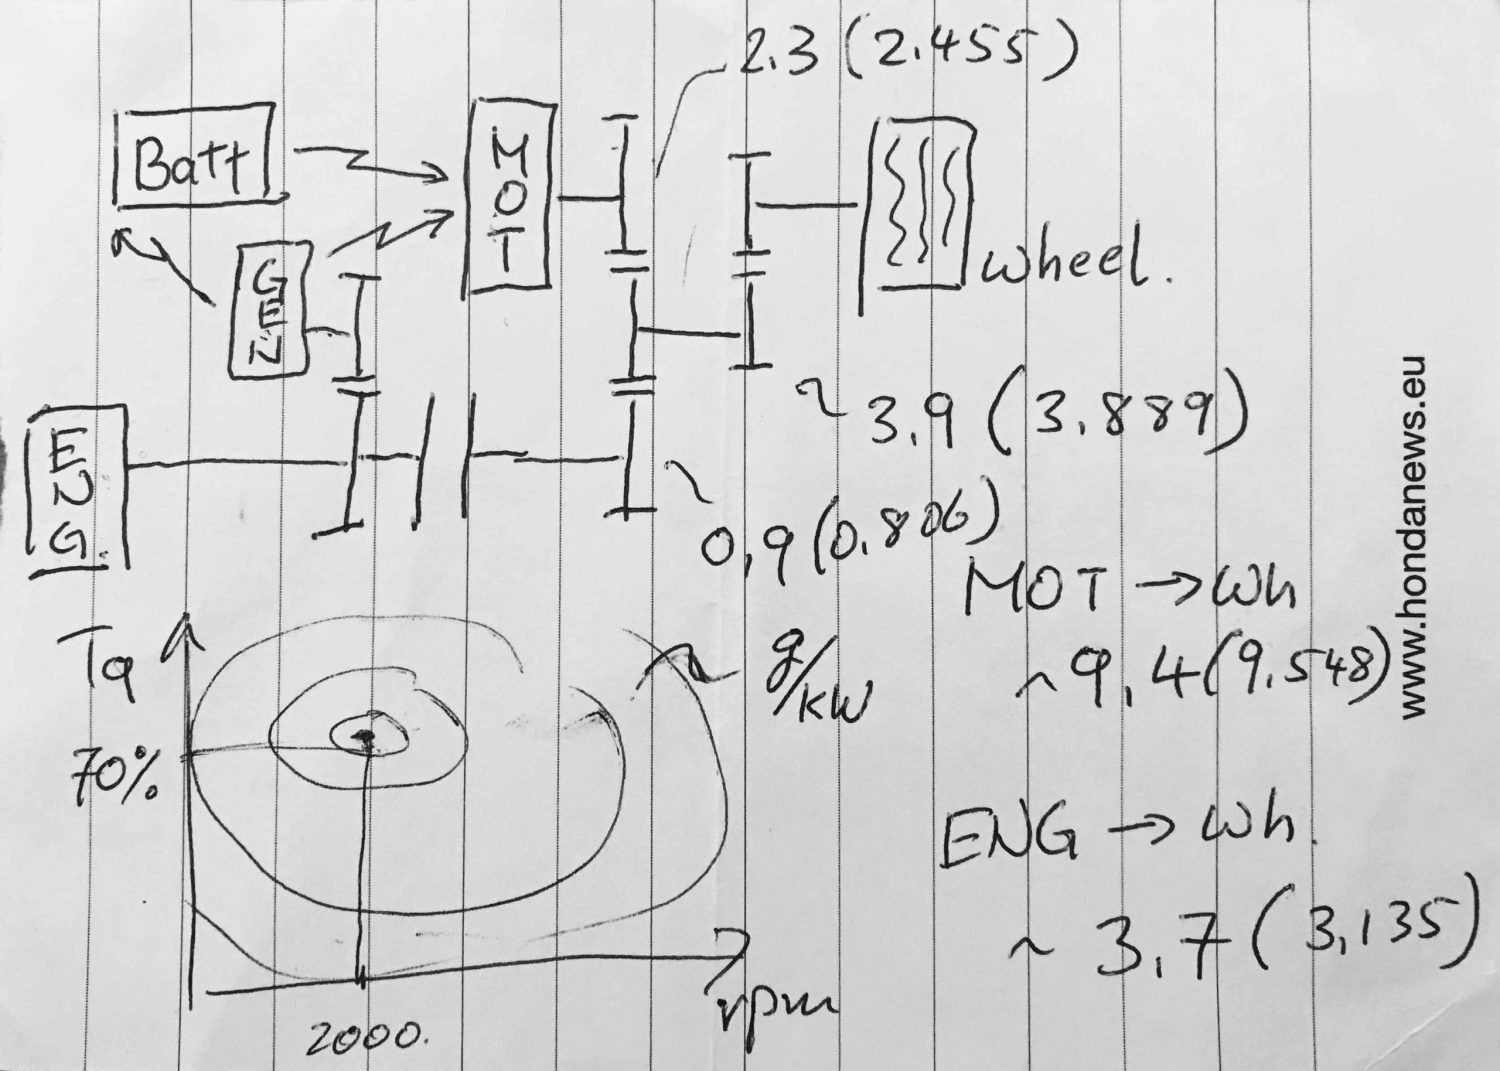 2.3 (2.455)
Batt
MOT
GEN
wheel.
~ 3.9 (3.889)
ENG.
0.9 (0.806)
MOT → Wh
~ 9.4 (9.548)
www.hondanews.eu
Tq
g/kW
70%
ENG → Wh.
~ 3.7 (3.135)
rpm
2000.